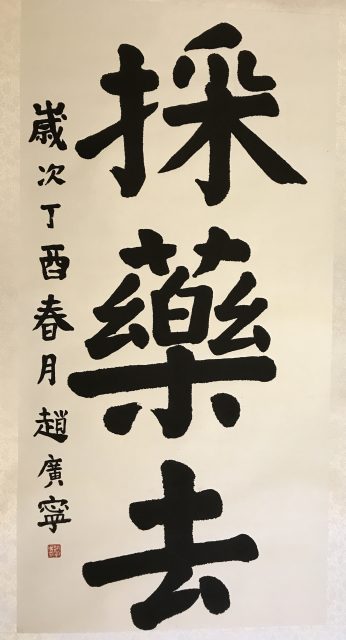 採藥去
歲次丁酉春月 趙廣寧